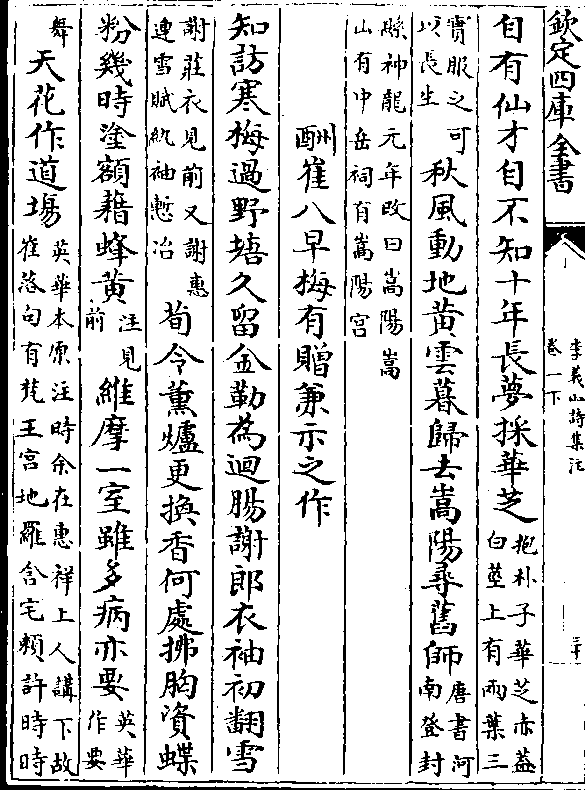 欽定四庫全書
李義山詩集注
卷一下
三十
自有仙才自不知十年長夢採華芝
抱朴子華芝赤蓋
白莖上有兩葉三
實服之可
以長生
秋風動地黄雲暮歸去嵩陽尋舊師
唐書河
南登封
縣神龍元年改曰嵩陽嵩
山有中岳祠有嵩陽宫
酬崔八早梅有贈兼示之作
知訪寒梅過野塘久留金勒為迴腸謝郎衣袖初翻雪
謝莊衣見前又謝惠
連雪賦紈袖慙冶
荀令薰爐更換香何處拂胸資蝶
粉幾時塗額藉蜂黄
注見
前
維摩一室雖多病亦要
英華
作要
舞
天花作道場
英華本原注時余在惠祥上人講下故
崔落句有梵王宫地羅含宅賴許時時